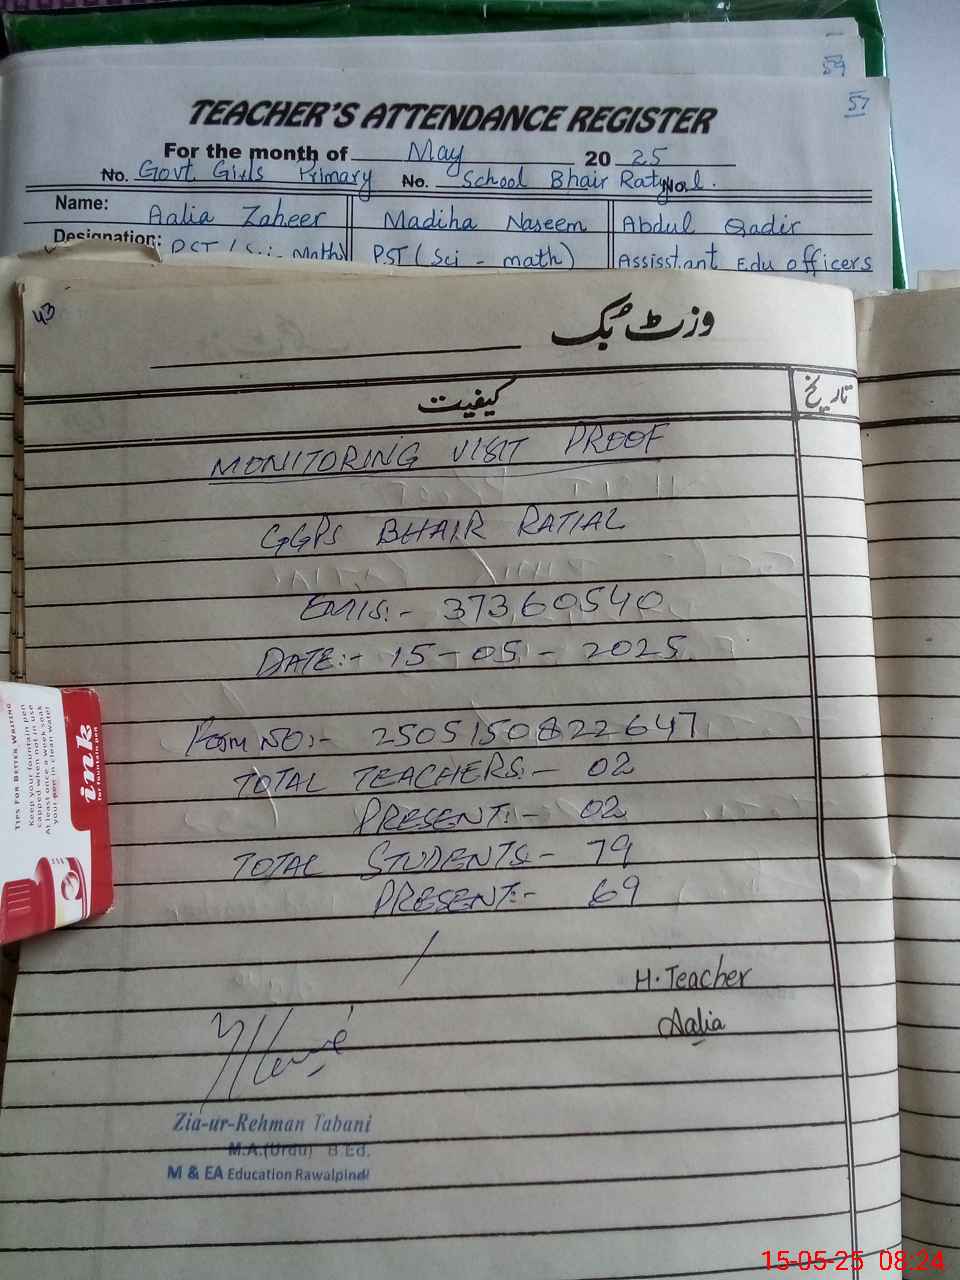 59
57
TEACHER'S ATTENDANCE REGISTER
For the month of May 20 25
No. Govt Girls Primary No. School Bhair Ratyal. No.
Name: Aalia Zaheer Madiha Naseem Abdul Qadir
Designation: PST (Sci - Math) PST (Sci - math) Assisstant Edu officers
43
وزٹ بُک
کیفیت تاریخ
MONITORING VISIT PROOF
GGPS BHAIR RATIAL
EMIS:- 37360540
DATE:- 15-05-2025
Form NO:- 2505150822647
TOTAL TEACHERS:- 02
PRESENT:- 02
TOTAL STUDENTS:- 79
PRESENT:- 69
H. Teacher
Aalia
Zia-ur-Rehman Tabani
M.A.(Urdu) B.Ed.
M & EA Education Rawalpindi
TIPS FOR BETTER WRITING
Keep your fountain pen
capped when not in use
At least once a week soak
your pen in clean water
ink
for fountain pen
15-05-25 08:24